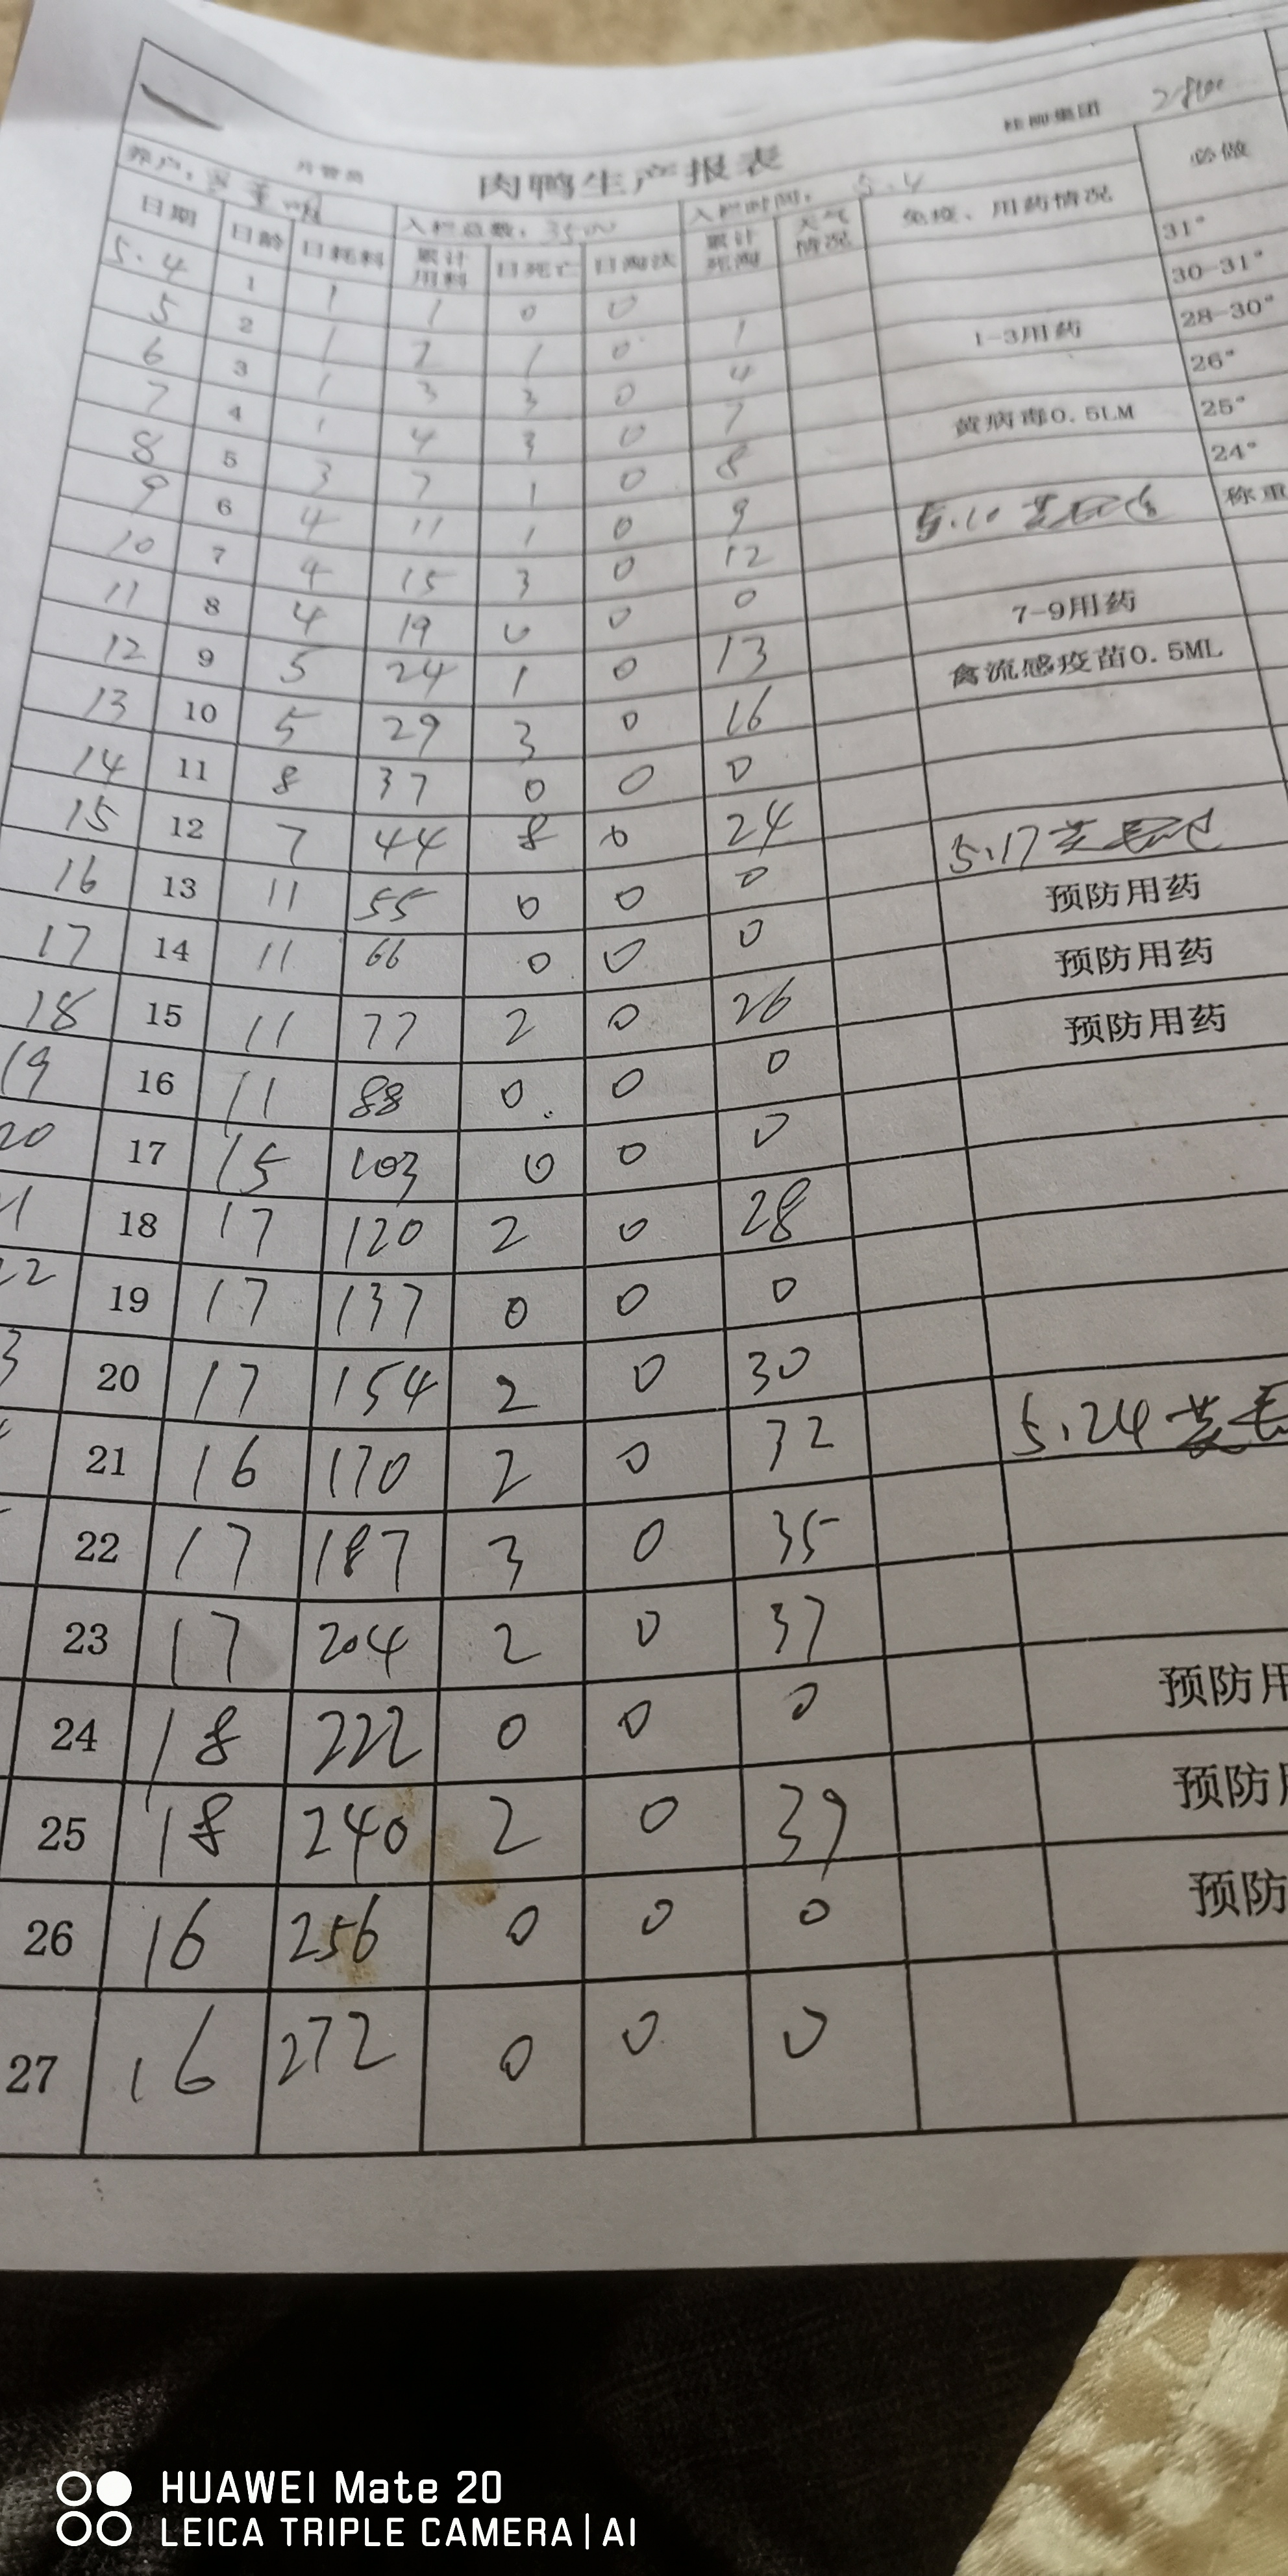 桂柳集团
肉鸭生产报表 必做
养户： 入栏总数：3500 入栏时间：5.4
日期 日龄 日耗料 累计用料 日死亡 日淘汰 累计死淘 天气情况 免疫、用药情况
5.4 1 1 1 0 0 31°
5 2 1 2 1 0 1 30-31°
6 3 1 3 3 0 4 1-3用药 28-30°
7 4 1 4 3 0 7 26°
8 5 3 7 1 0 8 黄病毒0.5LM 25°
9 6 4 11 1 0 9 24°
10 7 4 15 3 0 12 5.10 称重
11 8 4 19 0 0 0
12 9 5 24 1 0 13 7-9用药
13 10 5 29 3 0 16 禽流感疫苗0.5ML
14 11 8 37 0 0 0
15 12 7 44 8 0 24
16 13 11 55 0 0 0 5.17
17 14 11 66 0 0 0 预防用药
18 15 11 77 2 0 26 预防用药
19 16 11 88 0 0 0 预防用药
20 17 15 103 0 0 0
1 18 17 120 2 0 28
22 19 17 137 0 0 0
3 20 17 154 2 0 30
21 16 170 2 0 32 5.24
22 17 187 3 0 35
23 17 204 2 0 37
24 18 222 0 0 0 预防用
25 18 240 2 0 39 预防用
26 16 256 0 0 0 预防
27 16 272 0 0 0
HUAWEI Mate 20
LEICA TRIPLE CAMERA | AI